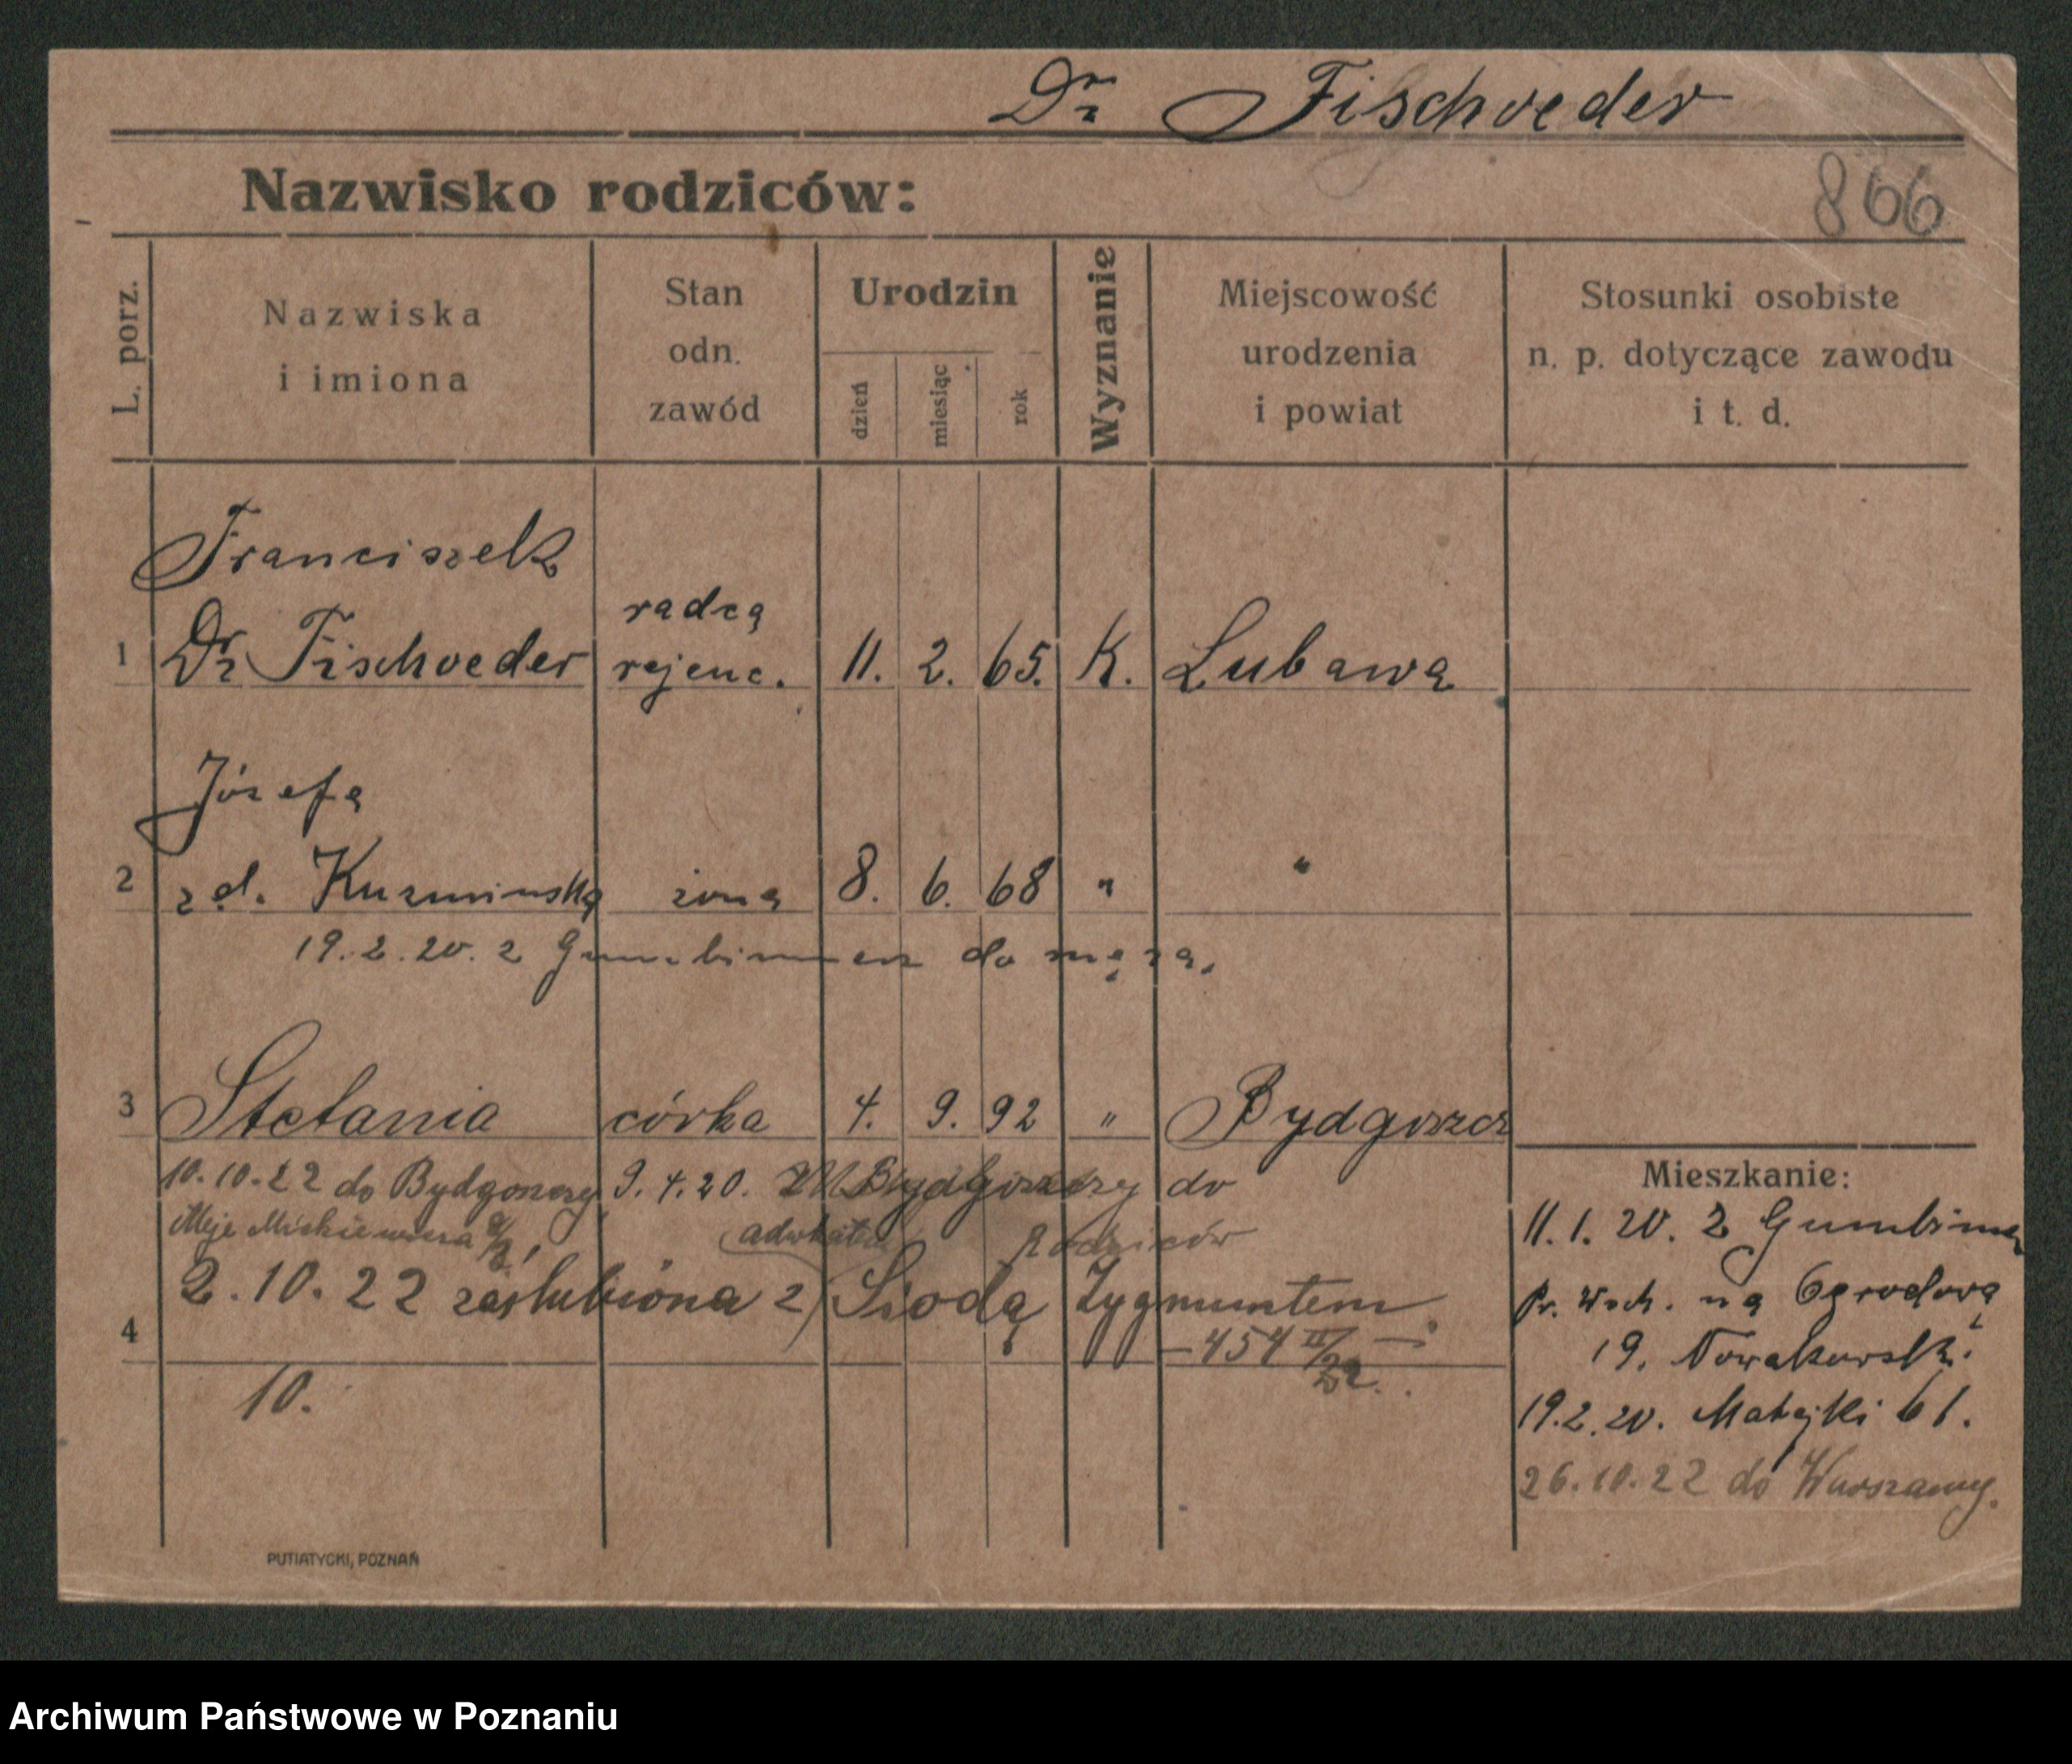 Dr Fischoeder
Nazwisko rodziców:
866
L. porz.
Nazwiska
i imiona
Stan
odn.
zawód
Urodzin
dzień
miesiąc
rok
Wyznanie
Miejscowość
urodzenia
i powiat
Stosunki osobiste
n. p. dotyczące zawodu
i t. d.
Franciszek
radca
1 Dr Fischoeder rejenc. 11. 2. 65. K. Lubawa
Józefa
2 z d. Kuzminska żona 8. 6. 68 " "
19.2.20. z Gumbinnen do męża.
3 Stefania córka 4. 9. 92 " Bydgoszcz
10.10.22 do Bydgoszczy 9.4.20. Bydgoszczy do
Mickiewicza adwokatem Rodziców
2.10.22 zaślubiona z Siodą Zygmuntem
4
– 454 II/22. –
10.
Mieszkanie:
11.1.20. z Gumbinnen
Pr. Wsch. na Ogrodową
19. Nowakowski.
19.2.20. Matejki 61.
26.10.22 do Warszawy.
PUTIATYCKI, POZNAŃ
Archiwum Państwowe w Poznaniu